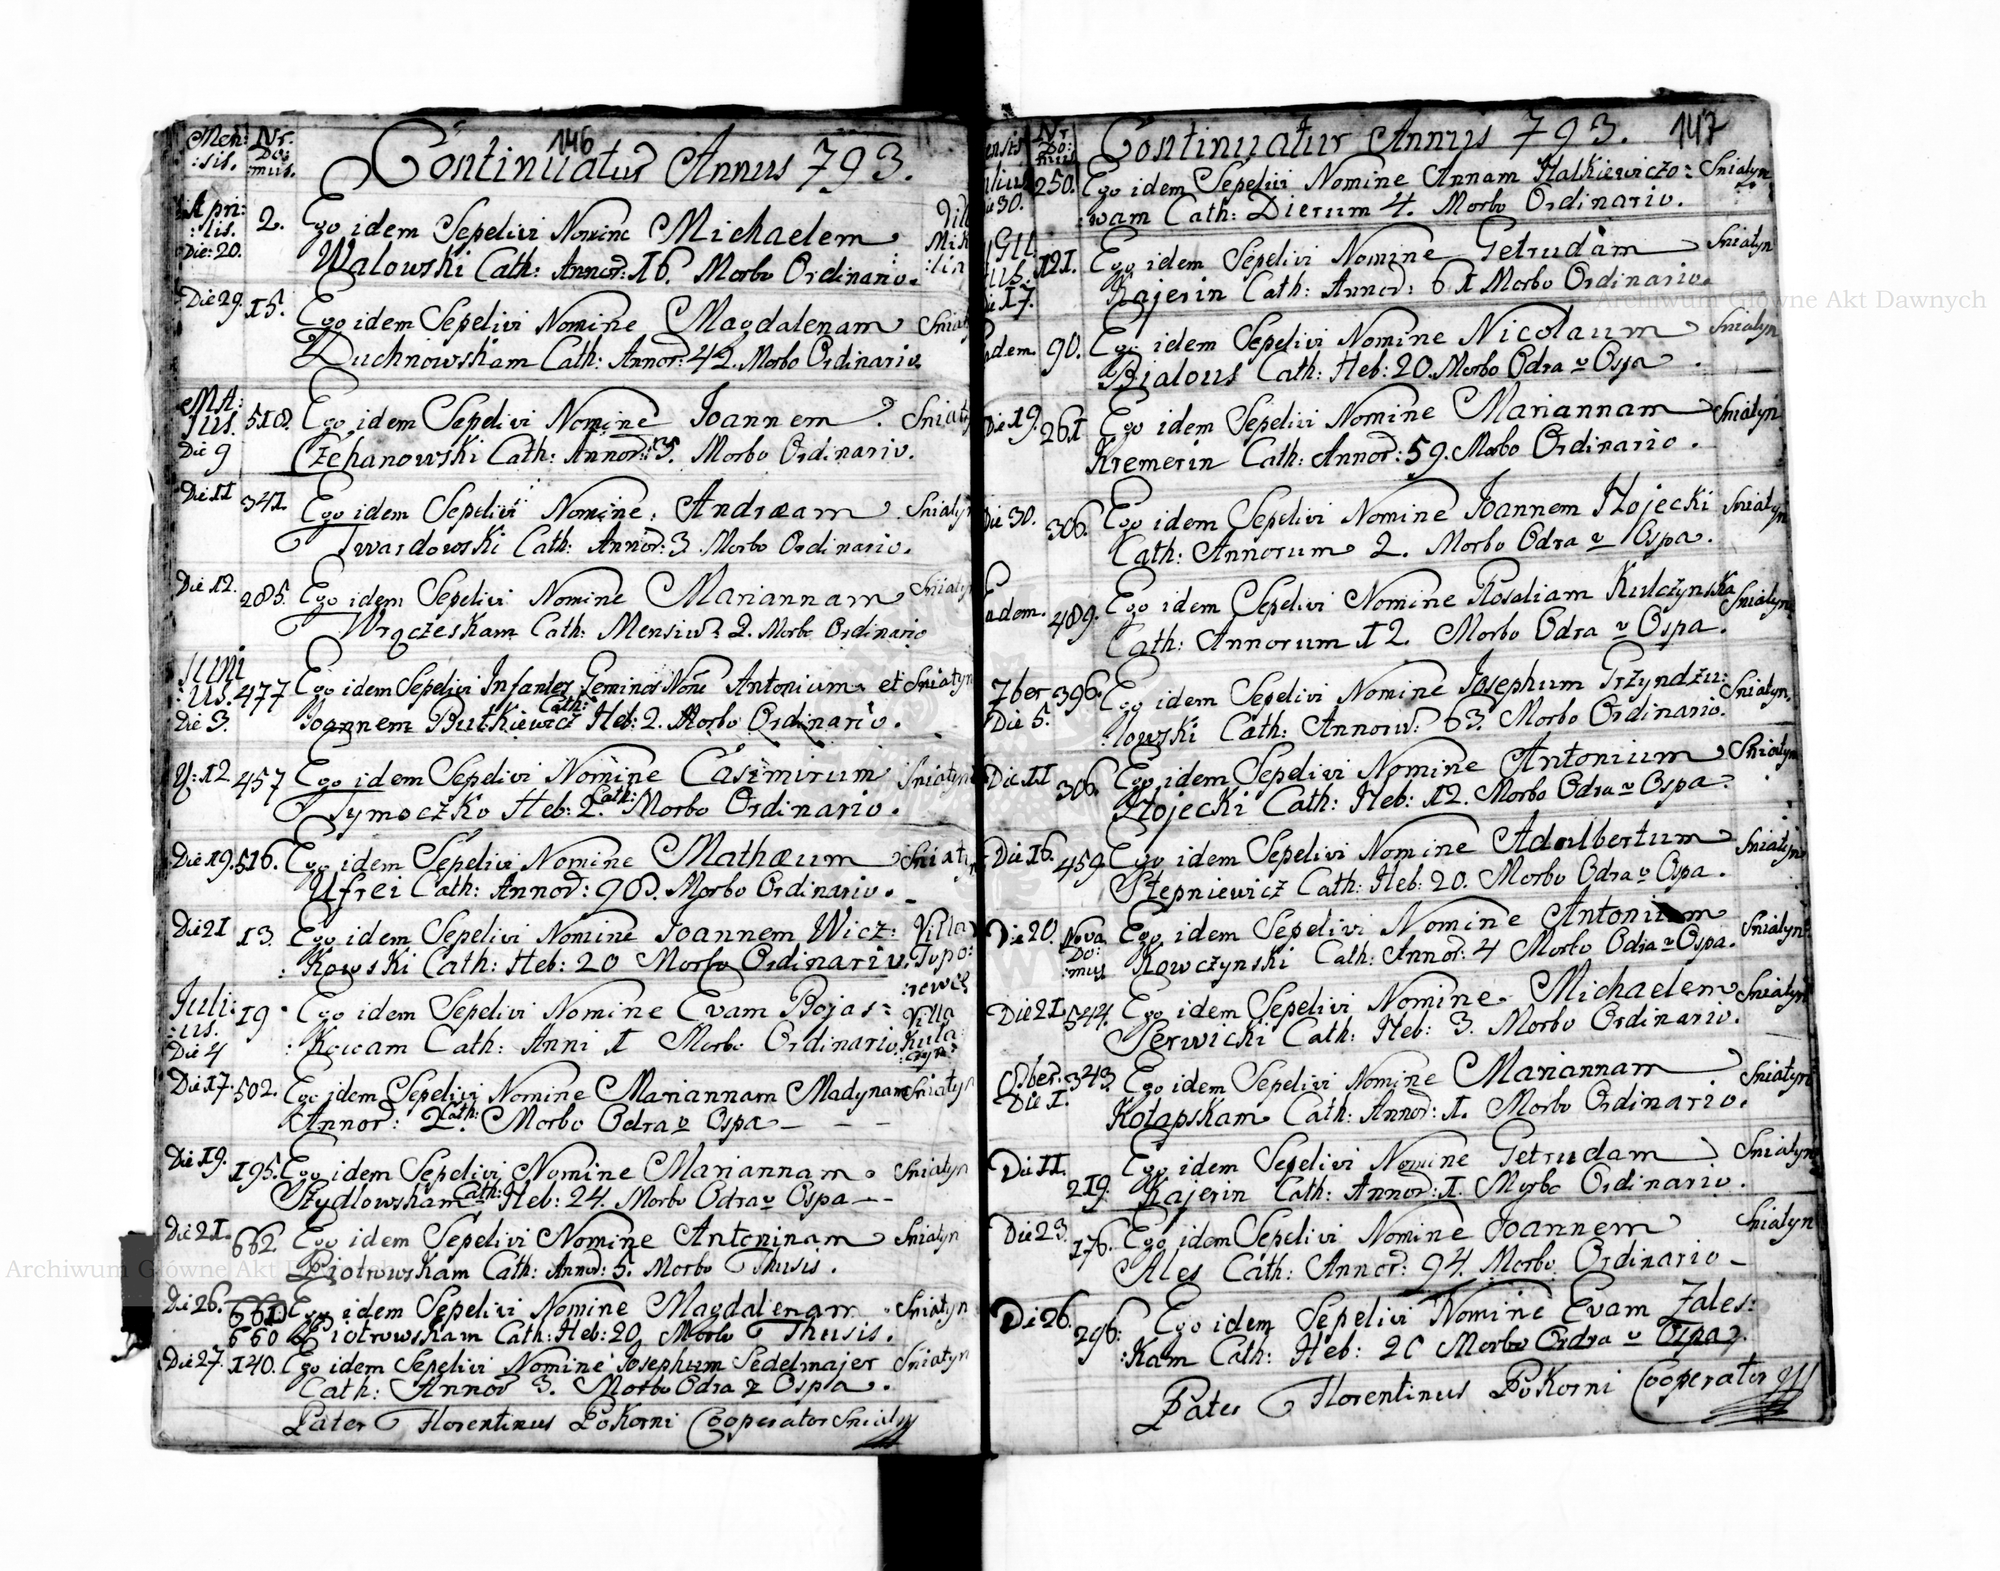 Men: Nr.
:sis. Do:
mus.
146
Continuatur Annus 793.
Apri: 2. Ego idem Sepelivi Nomine Michaelem
:lis. Die: 20. Walowski Cath: Annor: 16. Morbo Ordinario.
Die 29. 15. Ego idem Sepelivi Nomine Magdalenam
Duchnowskam Cath: Annor: 42. Morbo Ordinario.
MA: 518. Ego idem Sepelivi Nomine Joannem
Jus. Die 9 Czehanowski Cath: Annor: 3. Morbo Ordinario.
Die 11 341. Ego idem Sepelivi Nomine Andræam Sniatyn
Twardowski Cath: Annor: 3 Morbo Ordinario.
Die 12. 285. Ego idem Sepelivi Nomine Mariannam Sniatyn
Wrączeskam Cath: Mensiu: 2. Morbo Ordinario
Juni 477 Ego idem Sepelivi Infantes Geminos Noñe Antonium et Sniatyn
:us. Die 3. Joannem Butkiewicz Cath: Heb: 2. Morbo Ordinario.
12 457 Ego idem Sepelivi Nomine Casimirum Sniatyn
Tymoczko Heb: 2. Cath: Morbo Ordinario.
Die 19. 516. Ego idem Sepelivi Nomine Mathæum
Ufrei Cath: Annor: 98. Morbo Ordinario.
Die 21 13. Ego idem Sepelivi Nomine Joannem Wicz: Villa
:Kowski Cath: Heb: 20 Morbo Ordinario. Typo:
Juli: 19 Ego idem Sepelivi Nomine Evam Bojas: Villa
:us. Die 4 :Kowam Cath: Anni 1 Morbo Ordinario. Kula
Die 17. 502. Ego idem Sepelivi Nomine Mariannam Madynam Sniatyn
Annor: 2 Cath: Morbo Odra v Ospa - - -
Die 19. 195. Ego idem Sepelivi Nomine Mariannam Sniatyn
Szydlowskam Cath: Heb: 24. Morbo Odra v Ospa - -
Die 21. 662. Ego idem Sepelivi Nomine Antoninam Sniatyn
Piotrowskam Cath: Annor: 5. Morbo Thisis.
Die 26. Ego idem Sepelivi Nomine Magdalenam Sniatyn
660 Piotrowskam Cath: Heb: 20 Morbo Thisis.
Die 27. 140. Ego idem Sepelivi Nomine Josephum Sedelmajer Sniatyn
Cath: Annor 3. Morbo Odra v Ospa.
Pater Florentinus Pokorni Cooperator Sniaty
Nr
Do:
mus
Continuatur Annus 793. 147
250. Ego idem Sepelivi Nomine Annam Halkiewiczo: Sniatyn
30. :wam Cath: Dierum 4. Morbo Ordinario.
121. Ego idem Sepelivi Nomine Getrudam Sniatyn
17. Kajerin Cath: Annor: 61 Morbo Ordinario.
90. Ego idem Sepelivi Nomine Nicolaum Sniatyn
Bialous Cath: Heb: 20. Morbo Odra v Ospa.
Die 19. 261 Ego idem Sepelivi Nomine Mariannam Sniatyn
Kremerin Cath: Annor: 59. Morbo Ordinario.
Die 30. 306. Ego idem Sepelivi Nomine Joannem Hojecki Sniatyn
Cath: Annorum 2. Morbo Odra v Ospa.
Eadem. 489. Ego idem Sepelivi Nomine Rosaliam Kulczynska Sniatyn
Cath: Annorum 12. Morbo Odra v Ospa.
7ber 396. Ego idem Sepelivi Nomine Josephum Przyndzu: Sniatyn.
Die 5. :lowski Cath: Annoru: 63. Morbo Ordinario.
Die 11 306. Ego idem Sepelivi Nomine Antonium Sniatyn
Hojecki Cath: Heb: 12. Morbo Odra v Ospa.
Die 16. 459. Ego idem Sepelivi Nomine Adalbertum Sniatyn
Stepniewicz Cath: Heb: 20. Morbo Odra v Ospa.
Die 20. Nova Ego idem Sepelivi Nomine Antonium Sniatyn
Do: mus Kowczynski Cath: Annor: 4 Morbo Odra v Ospa.
Die 21. 544. Ego idem Sepelivi Nomine Michaelem Sniatyn
Serwicki Cath: Heb: 3. Morbo Ordinario.
8ber. 343. Ego idem Sepelivi Nomine Mariannam Sniatyn
Die 1. Kolapskam Cath: Annor: 1. Morbo Ordinario.
Die 11. 219. Ego idem Sepelivi Nomine Getrudam Sniatyn
Kajerin Cath: Annor: 1. Morbo Ordinario.
Die 23. 176. Ego idem Sepelivi Nomine Joannem Sniatyn
Ales Cath: Annor: 94. Morbo Ordinario -
Die 26. 296. Ego idem Sepelivi Nomine Evam Zales:
:Kam Cath: Heb: 20 Morbo Ordra v Ospa.
Pater Florentinus Pokorni Cooperator
Archiwum Główne Akt Dawnych
Archiwum Główne Akt Dawnych